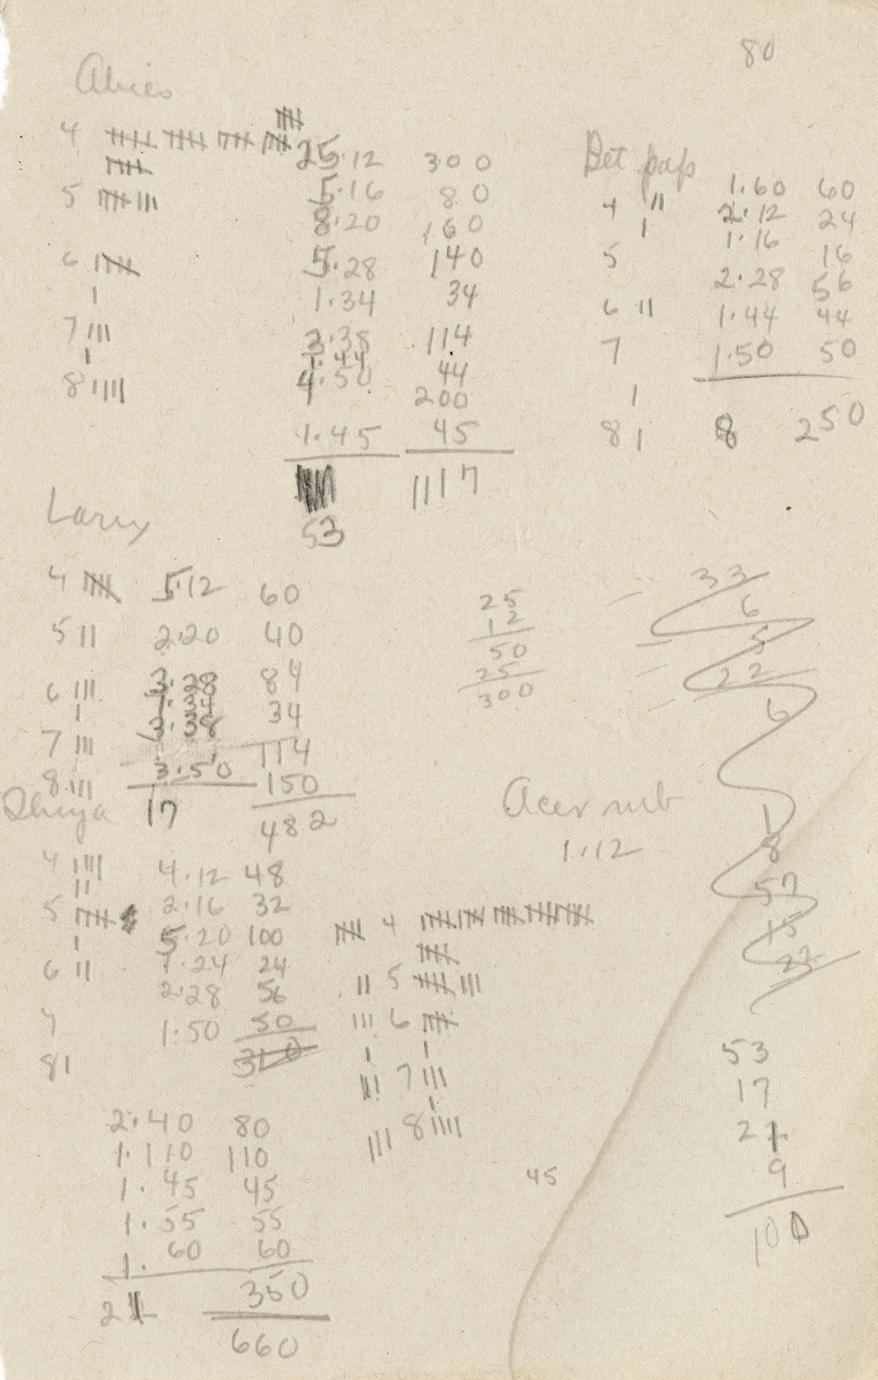 80
Abies
4 卌 卌 卌 卌 卌
卌
5 卌 |||
6 | 卌
|
7 |||
|
8 ||||
25.12 300
5.16 80
8.20 160
5.28 140
1.34 34
3.38 114
1.44 44
4.50 200
1.45 45
1117
53
Bet pap
4 ||
|
5
6 ||
7
|
8 |
1.60 60
2.12 24
1.16 16
2.28 56
1.44 44
1.50 50
8 250
Larix
4 卌 5.12 60
5 || 2.20 40
6 ||| 3.28 84
| 1.34 34
7 ||| 3.38 114
8 ||| 3.50 150
17 482
25
12
50
25
300
33
6
5
22
6
1
8
57
15
22
Thuja
4 |||| 4.12 48
|| 2.16 32
5 卌 5.20 100
| 1.24 24
6 || 2.28 56
7 1.50 50
8 | 310
2.40 80
1.110 110
1.45 45
1.55 55
1.60 60
21 350
660
Acer rub
1.12
卌 4 卌 卌 卌 卌 卌
卌
|| 5 卌 |||
||| 6 卌
| |
||| 7 |||
|
||| 8 ||||
45
53
17
21
9
100